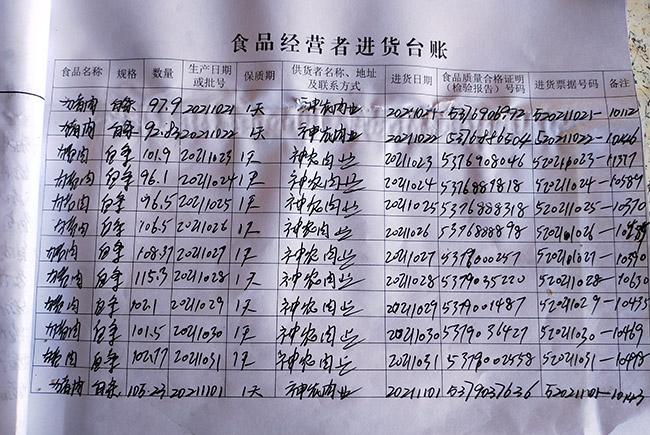 食品经营者进货台账
食品名称 规格 数量 生产日期或批号 保质期 供货者名称、地址及联系方式 进货日期 食品质量合格证明(检验报告)号码 进货票据号码 备注
猪肉 白条 97.9 20211021 1天 神农肉业 20211021 5376906972 S20211021-10112
猪肉 白条 92.83 20211022 1天 神农肉业 20211022 5376886504 S20211022-10446
猪肉 白条 101.9 20211023 1天 神农肉业 20211023 5376908046
猪肉 白条 96.1 20211024 1天 神农肉业 20211024 5376889818 S20211024-10589
猪肉 白条 96.5 20211025 1天 神农肉业 20211025 5376888318 S20211025-10370
猪肉 白条 106.5 20211026 1天 神农肉业 20211026 5376888898
猪肉 白条 108.37 20211027 1天 神农肉业 20211027 5379000257 S20211027-10390
猪肉 白条 115.3 20211028 1天 神农肉业 20211028 5379035220 S20211028-10630
猪肉 白条 102.1 20211029 1天 神农肉业 20211029 5379001487 S20211029-10435
猪肉 白条 101.5 20211030 1天 神农肉业 20211030 5379036427 S20211030-10469
猪肉 白条 102.77 20211031 1天 神农肉业 20211031 5379002558 S20211031-10498
猪肉 白条 105.23 20211101 1天 神农肉业 20211101 5379037636 S20211101-10143